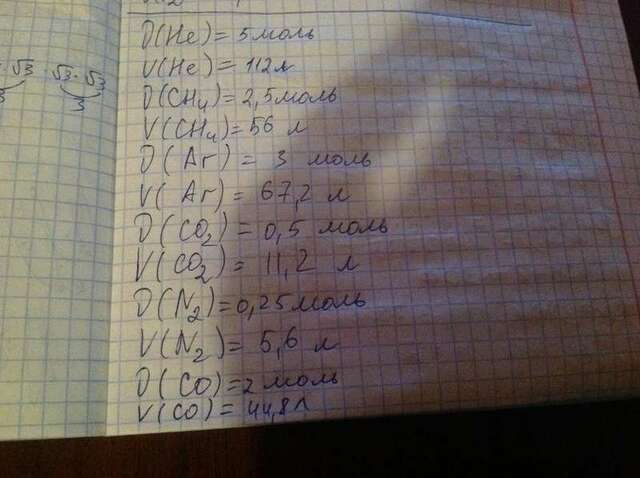 √3 √3·√3
3 3
D(He) = 5 моль
V(He) = 112 л
D(CH4) = 2,5 моль
V(CH4) = 56 л
D(Ar) = 3 моль
V(Ar) = 67,2 л
D(CO2) = 0,5 моль
V(CO2) = 11,2 л
D(N2) = 0,25 моль
V(N2) = 5,6 л
D(CO) = 2 моль
V(CO) = 44,8 л